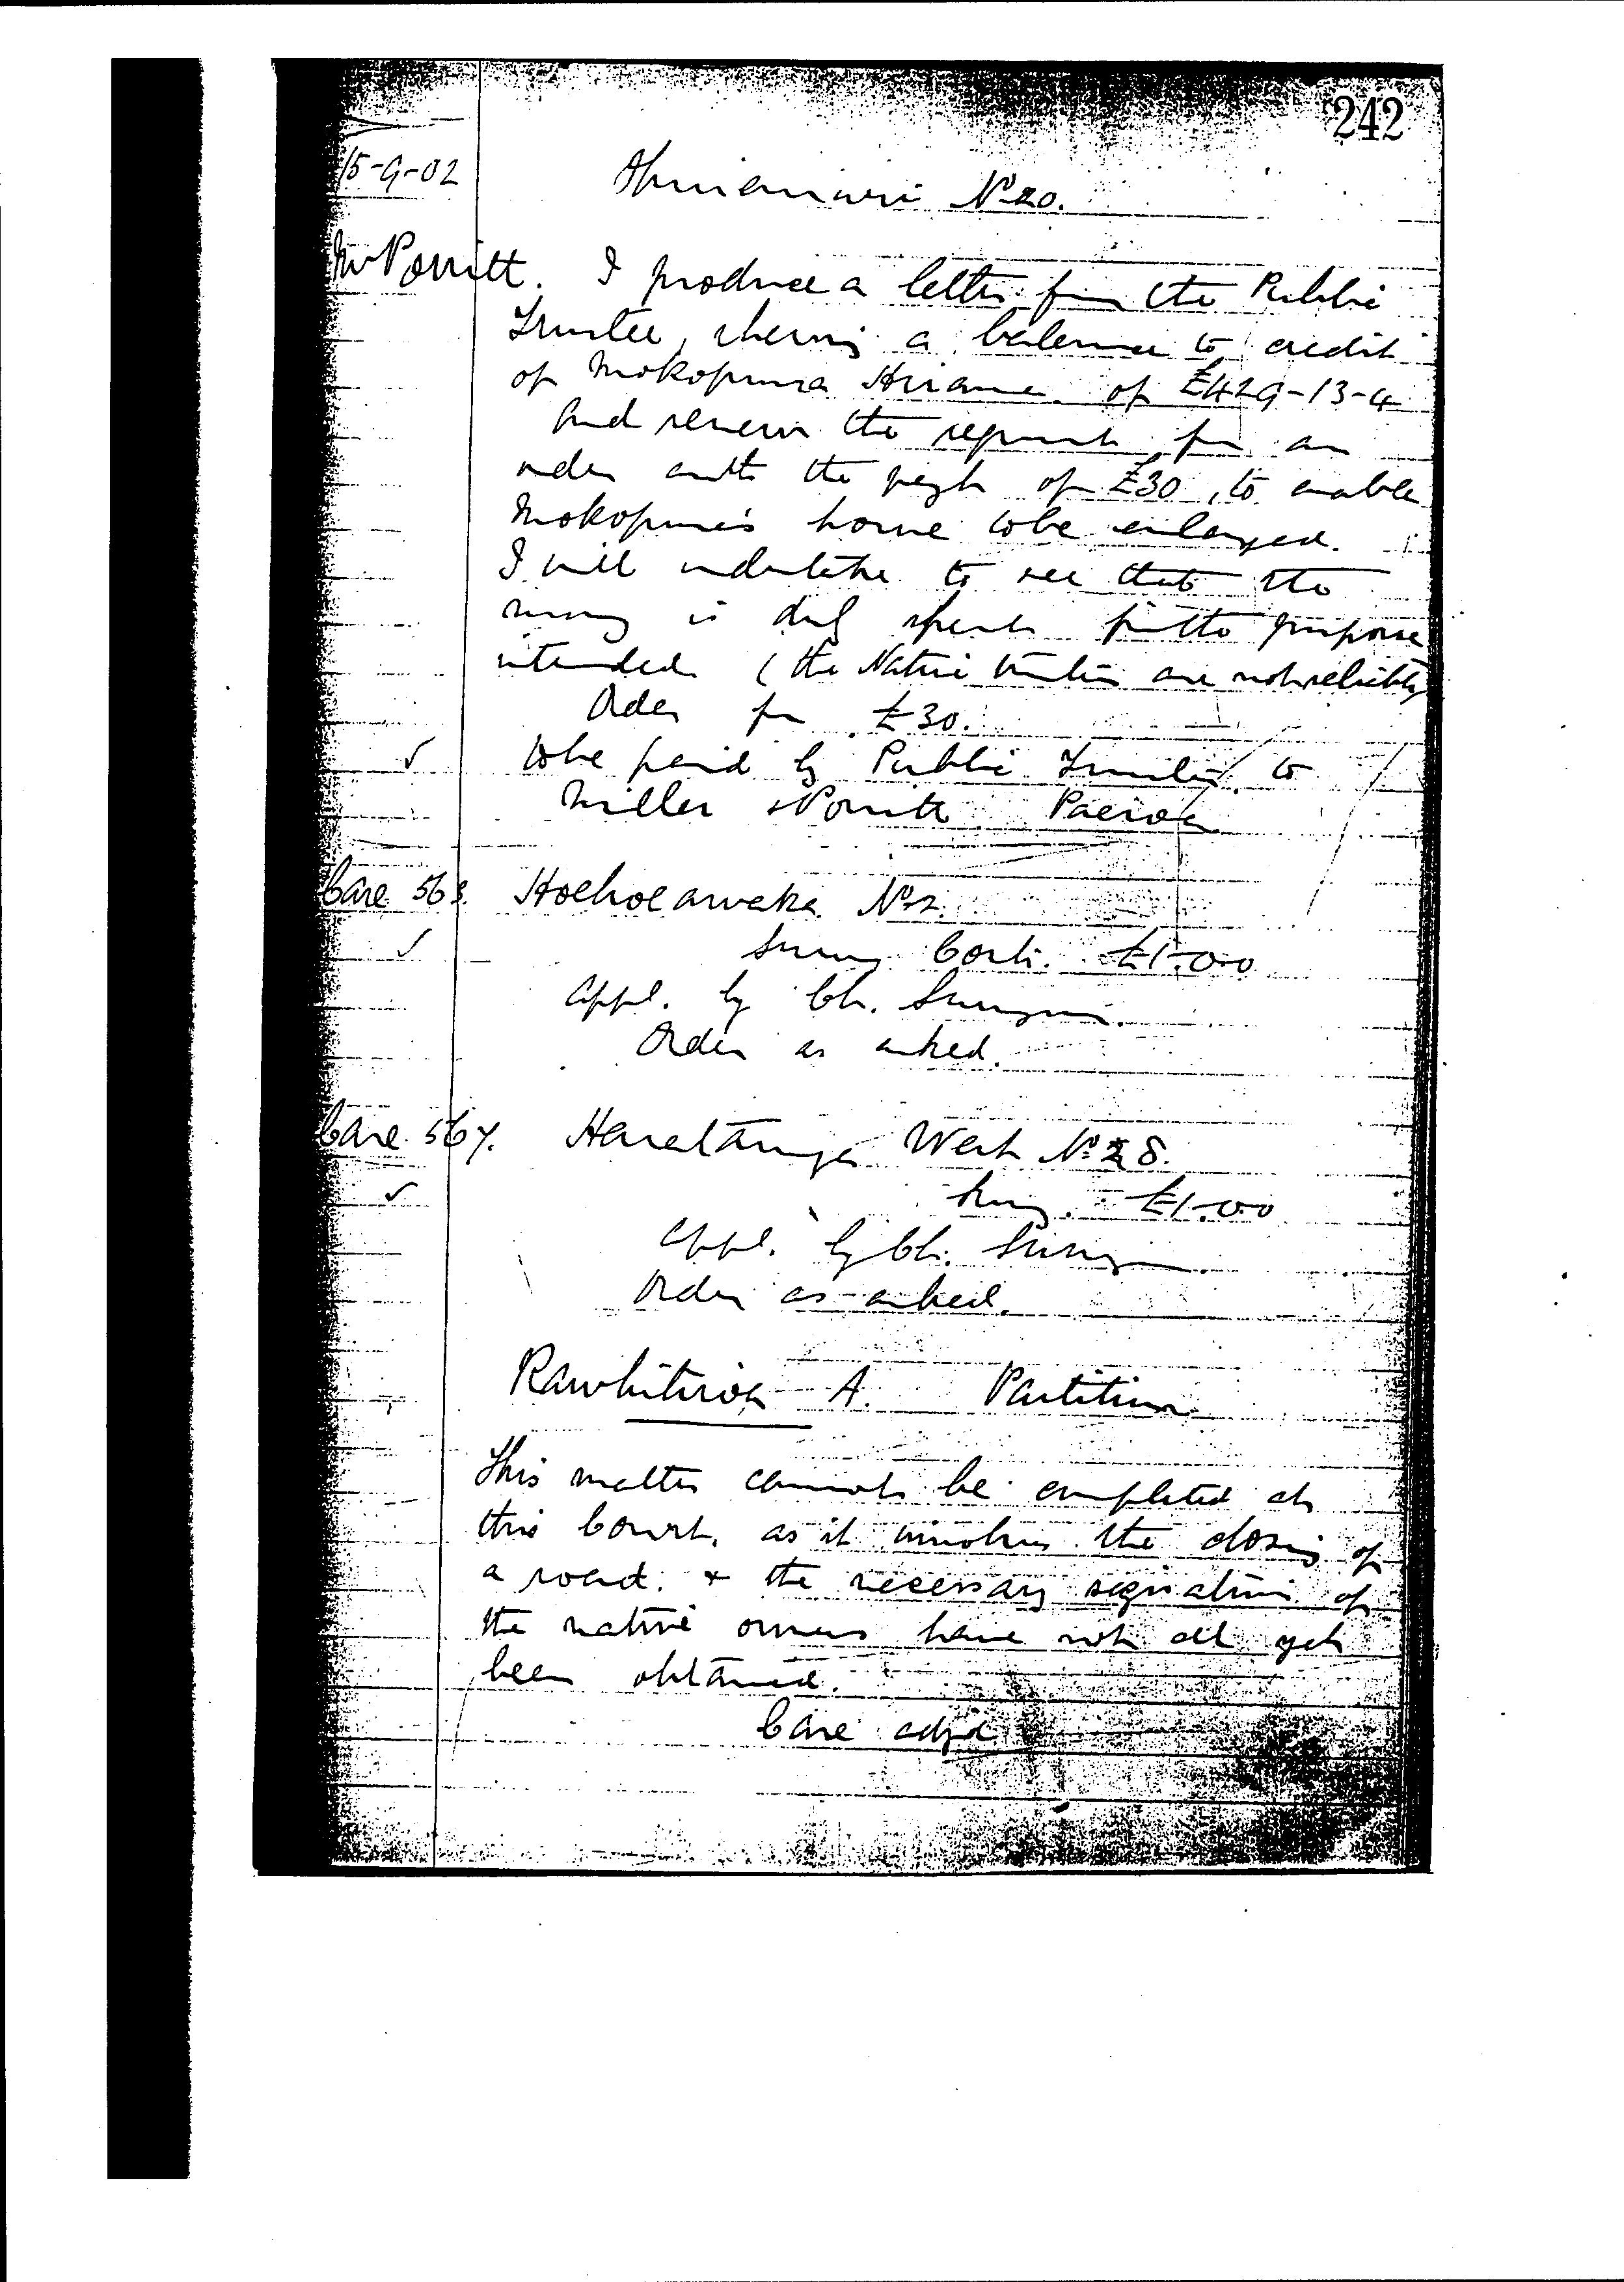 242
15-9-02
Ohinemuri No 20.
Mr Porritt. I produce a letter from the Public
Trustee, showing a balance to credit
of Mokopuna Hirama of £429-13-4
And renew the request for an
order auth the paymt of £30, to enable
Mokopuna's house to be enlarged.
I will undertake to see that the
money is duly spent for the purpose
intended (the Native Trustees are not reliable)
Order for £30.
to be paid by Public Trustee to
Miller & Porritt Paeroa
Case 563. Hoehoe No 2.
Survey Costs. £1.0.0
appl. by Ch. Surveyor.
Order as asked.
Case 567. Haretaunga West No 2 8.
Survey. £1.0.0
appl. by Ch. Surveyor
Order as asked.
Rawhitiroa A. Partition
This matter cannot be completed at
this Court, as it involves the closing of
a road. & the necessary signatures of
the native owners have not all yet
been obtained.
Case adjd